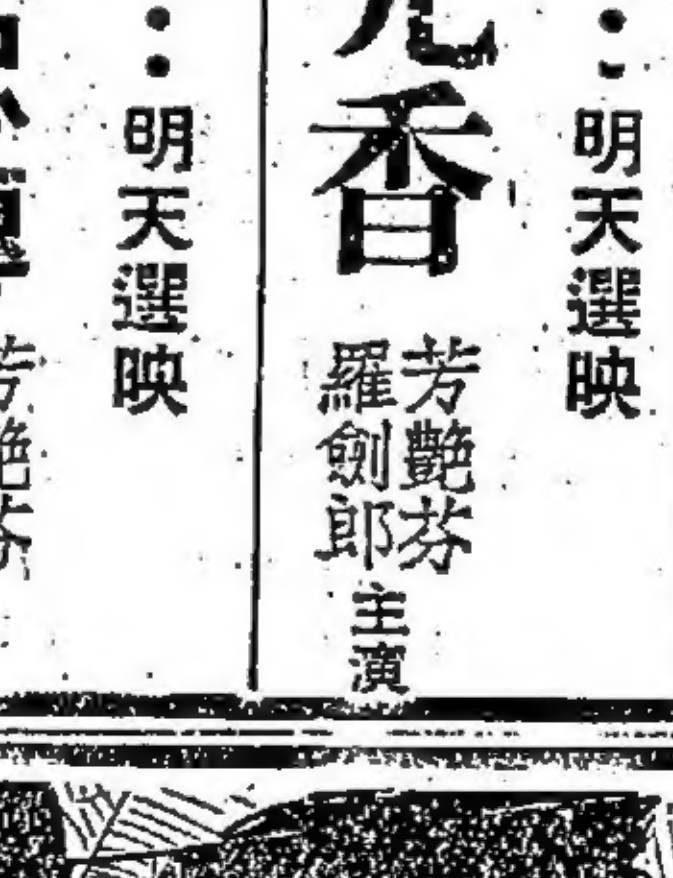 明天選映
香
芳艷芬
羅劍郎
主演
明天選映
芳艷芬